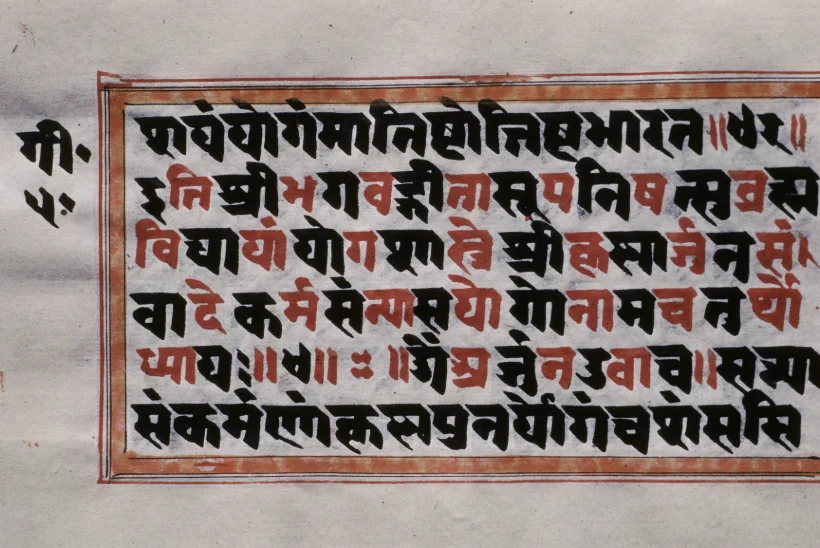 गी॰
प॰
शयंयोगंमातिष्टोत्तिष्टभारत॥४२॥
इतिश्रीभगवद्गीतासूपनिषत्सुब्रह्म
विद्यायांयोगशास्त्रेश्रीकृष्णार्जुनसं
वादेकर्मसंन्यासयोगोनामचतुर्थो
ध्यायः॥४॥ः॥ॐअर्जुनउवाच॥सन्या
संकर्मणांकृष्णपुनर्योगंचशंससि